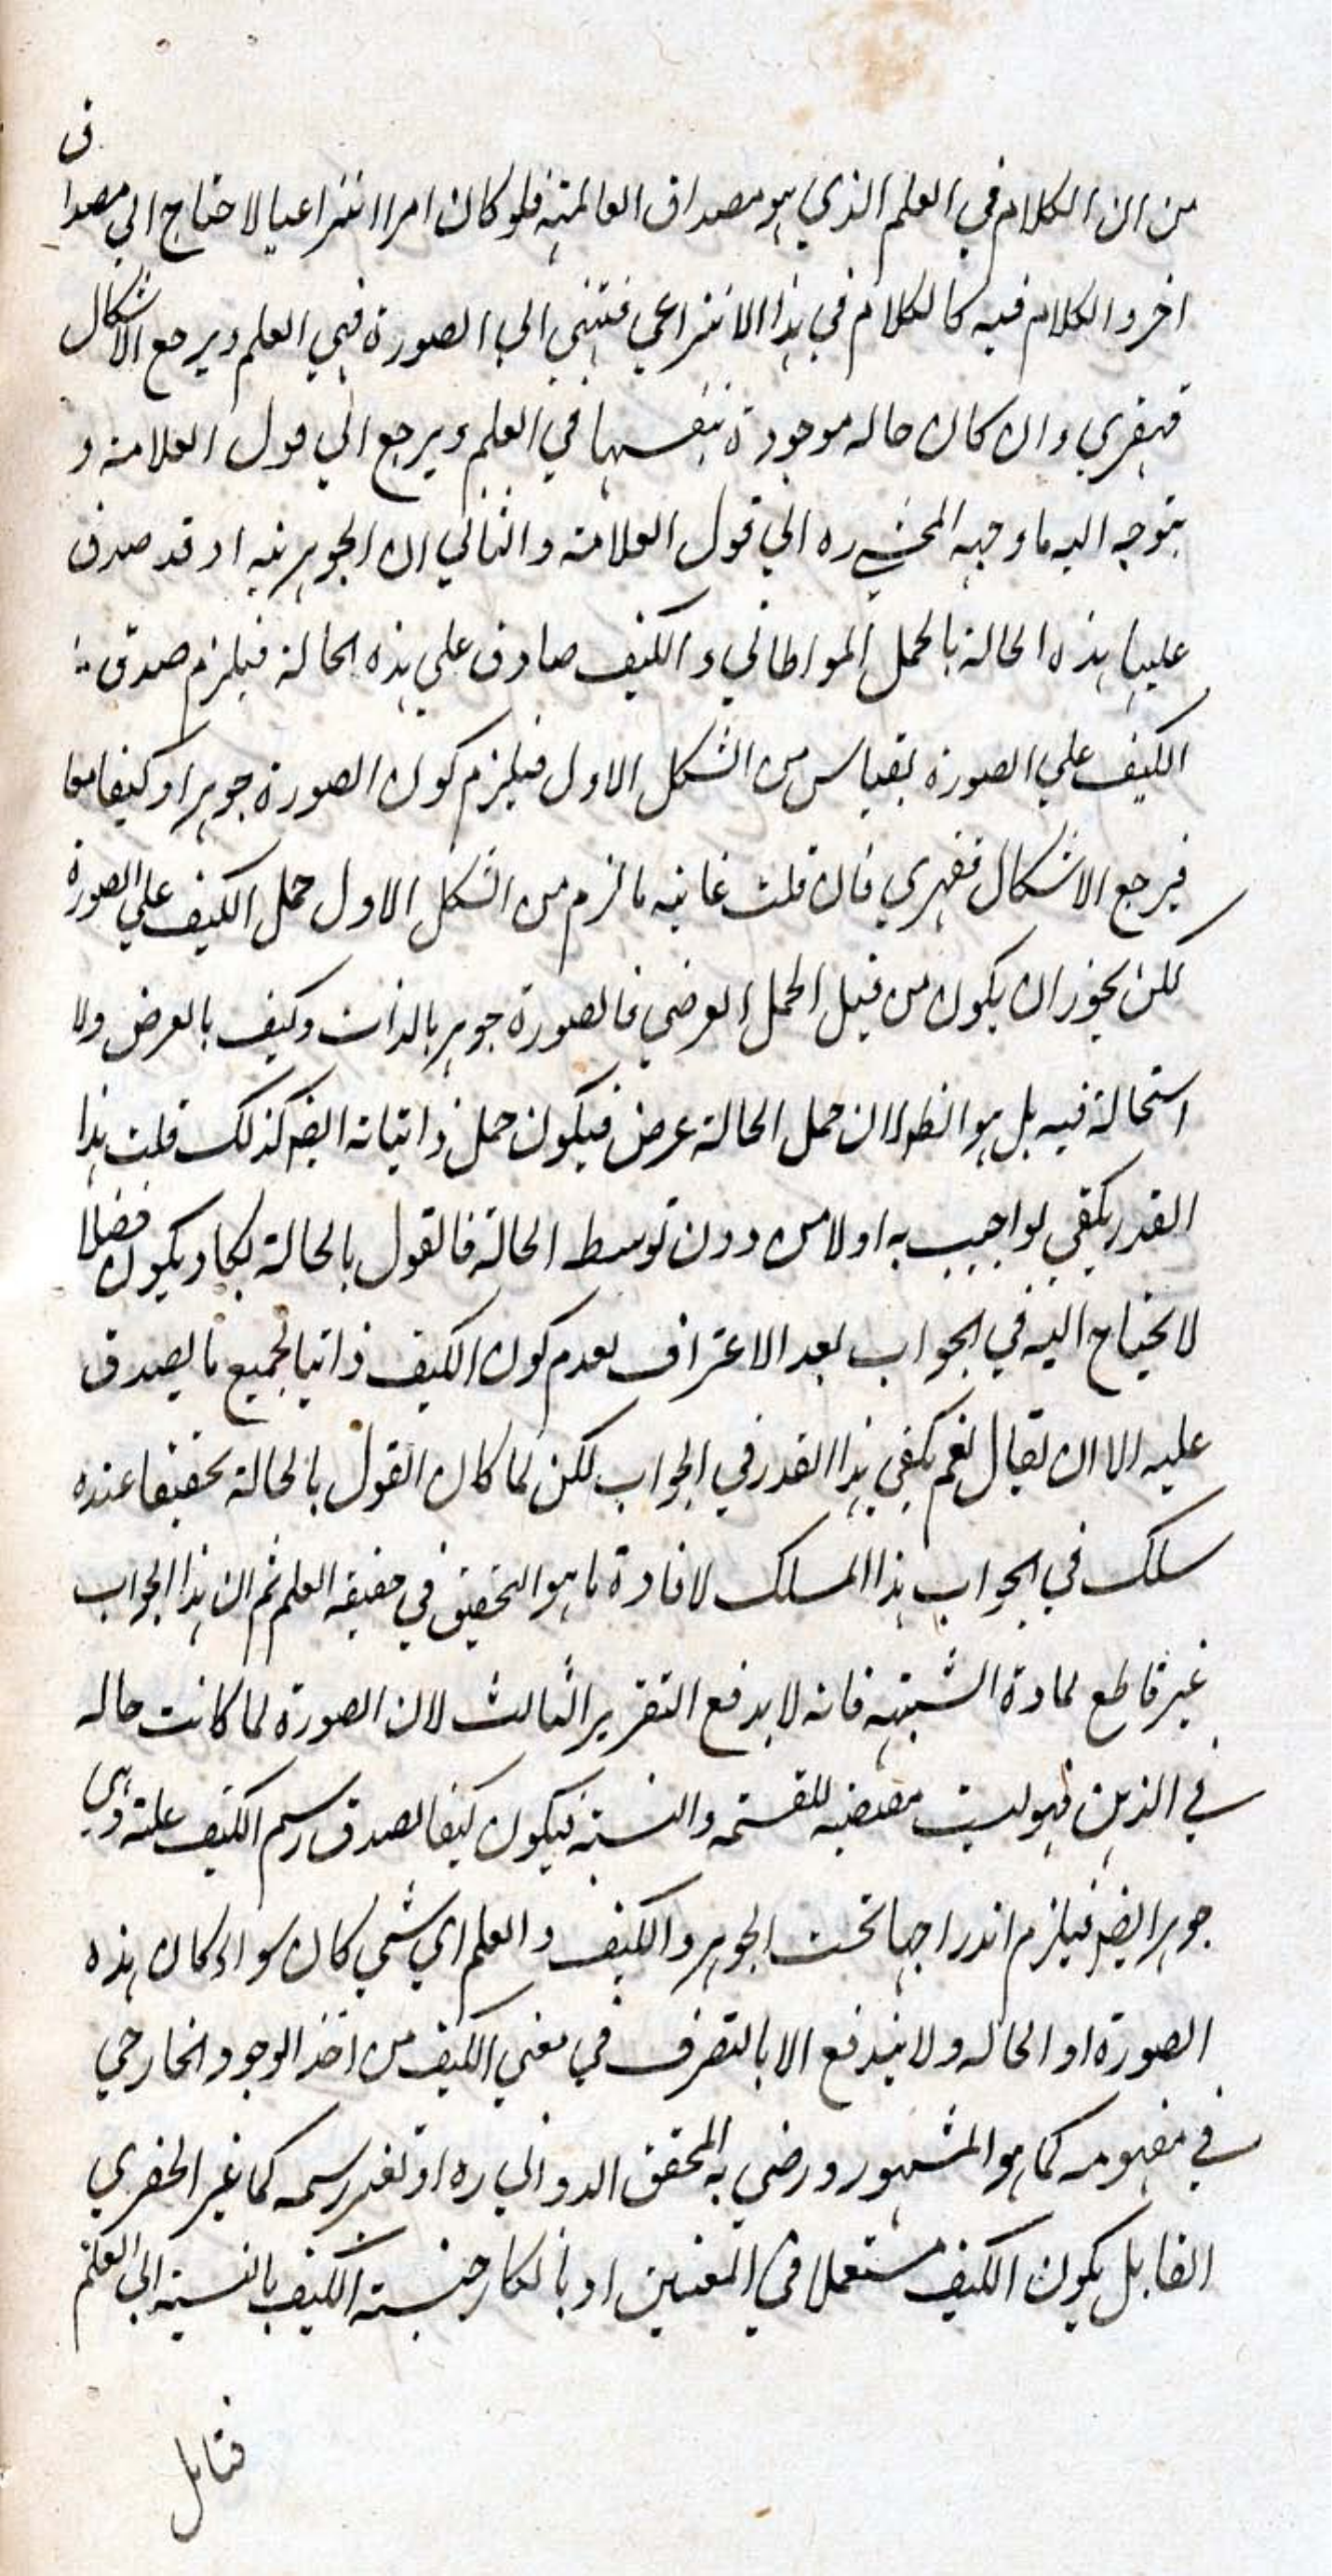 من ان الكلام في العلم الذي هو مصداق العالمية فلو كان امرا انتزاعيا لاحتاج الي مصداق
اخر والكلام فيه كالكلام في هذا الانتزاعي فتنتهي الي الصورة فهي العلم ويرجع الاشكال
قهقري وان كان حاله موجودة بنفسها في العلم ويرجع الي قول العلامة و
يتوجه اليه ما وجهه المحشي ره الي قول العلامة والثاني ان الجوهرية اذ قد صدق
عليها هذه الحالة بالحمل المواطاتي والكيف صادق علي هذه الحالة فيلزم صدق
الكيف علي الصورة بقياس من الشكل الاول فيلزم كون الصورة جوهرا وكيفا معا
فيرجع الاشكال قهقري فان قلت غاية ما لزم من الشكل الاول حمل الكيف علي الصورة
لكن يجوز ان يكون من قبيل الحمل العرضي فالصورة جوهر بالذات وكيف بالعرض ولا
استحالة فيه بل هو الظ لان حمل الحالة عرض فيكون حمل ذاتياته ايض كذلك قلت هذا
القدر يكفي لو اجيب به اولا من دون توسط الحالة فالقول بالحالة يكاد يكون فضلا
لا يحتاج اليه في الجواب بعد الاعتراف بعدم كون الكيف ذاتيا لجميع ما يصدق
عليه الا ان يقال نعم يكفي هذا القدر في الجواب لكن لما كان القول بالحالة تحقيقا عنده
سلك في الجواب هذا المسلك لافادة ما هو التحقيق في حقيقة العلم ثم ان هذا الجواب
غير قاطع لمادة الشبهة فانه لا يدفع التقرير الثالث لان الصورة لما كانت حاله
في الذهن فهو ليست مقتضيه للقسمة والنسبة فيكون كيفا لصدق رسم الكيف عليه وهي
جوهر ايض فيلزم اندراجها تحت الجوهر والكيف والعلم اي شي كان سواء كان هذه
الصورة او الحاله ولا يندفع الا بالتصرف في معني الكيف من اخذ الوجود الخارجي
في مفهومه كما هو المشهور ورضي به المحقق الدواني ره او تغير رسمه كما غير الخفري
القابل يكون الكيف مستعملا في المعنيين او بانكار جنسية الكيف بالنسبة الي العلم
فتامل